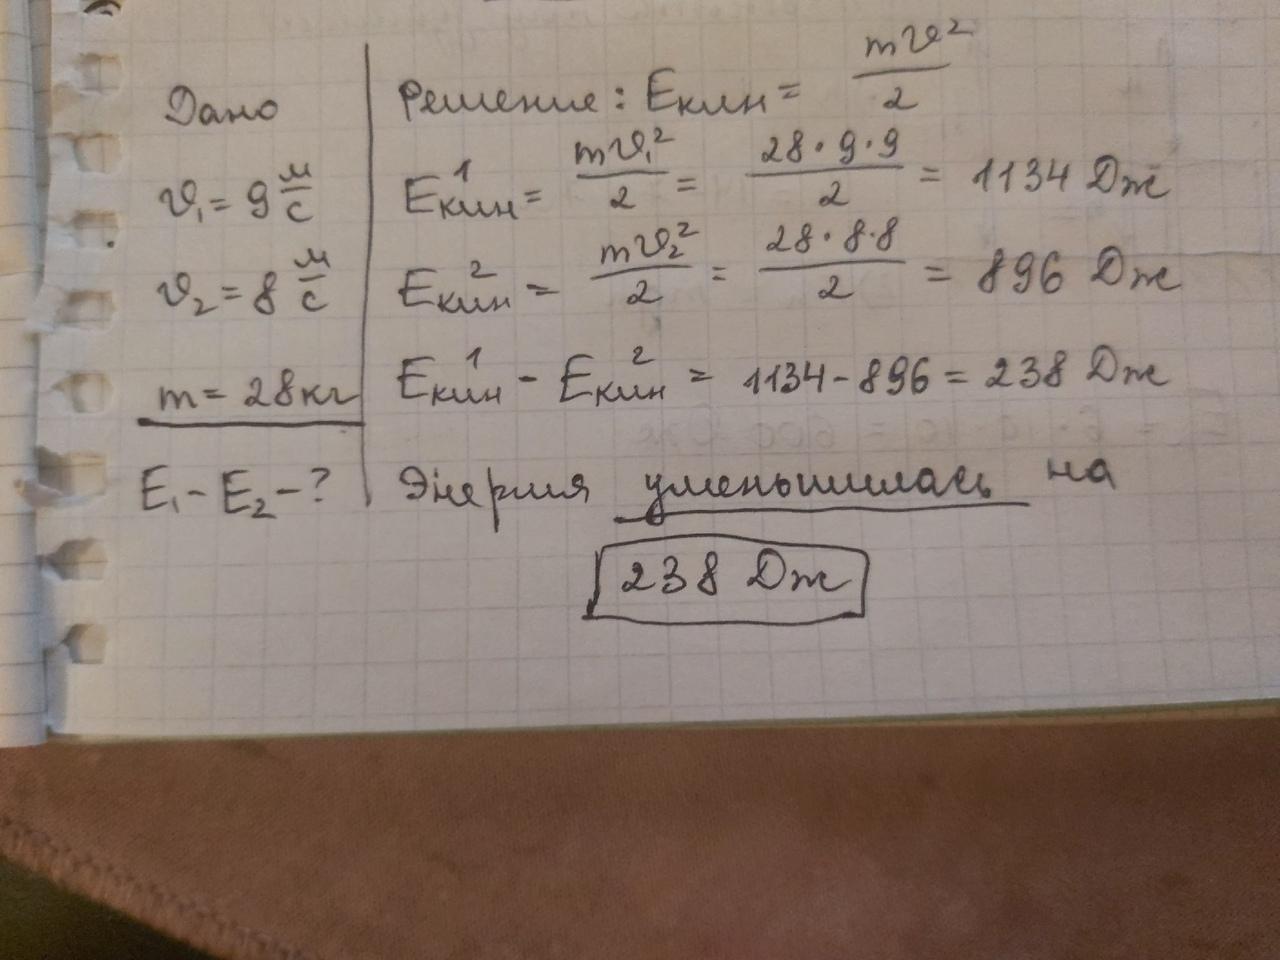 Дано
v₁ = 9 м/с
v₂ = 8 м/с
m = 28 кг
E₁ - E₂ - ?
Решение: Eкин = mv²/2
Eкин¹ = mv₁²/2 = 28·9·9/2 = 1134 Дж
Eкин² = mv₂²/2 = 28·8·8/2 = 896 Дж
Eкин¹ - Eкин² = 1134 - 896 = 238 Дж
Энергия уменьшилась на
238 Дж